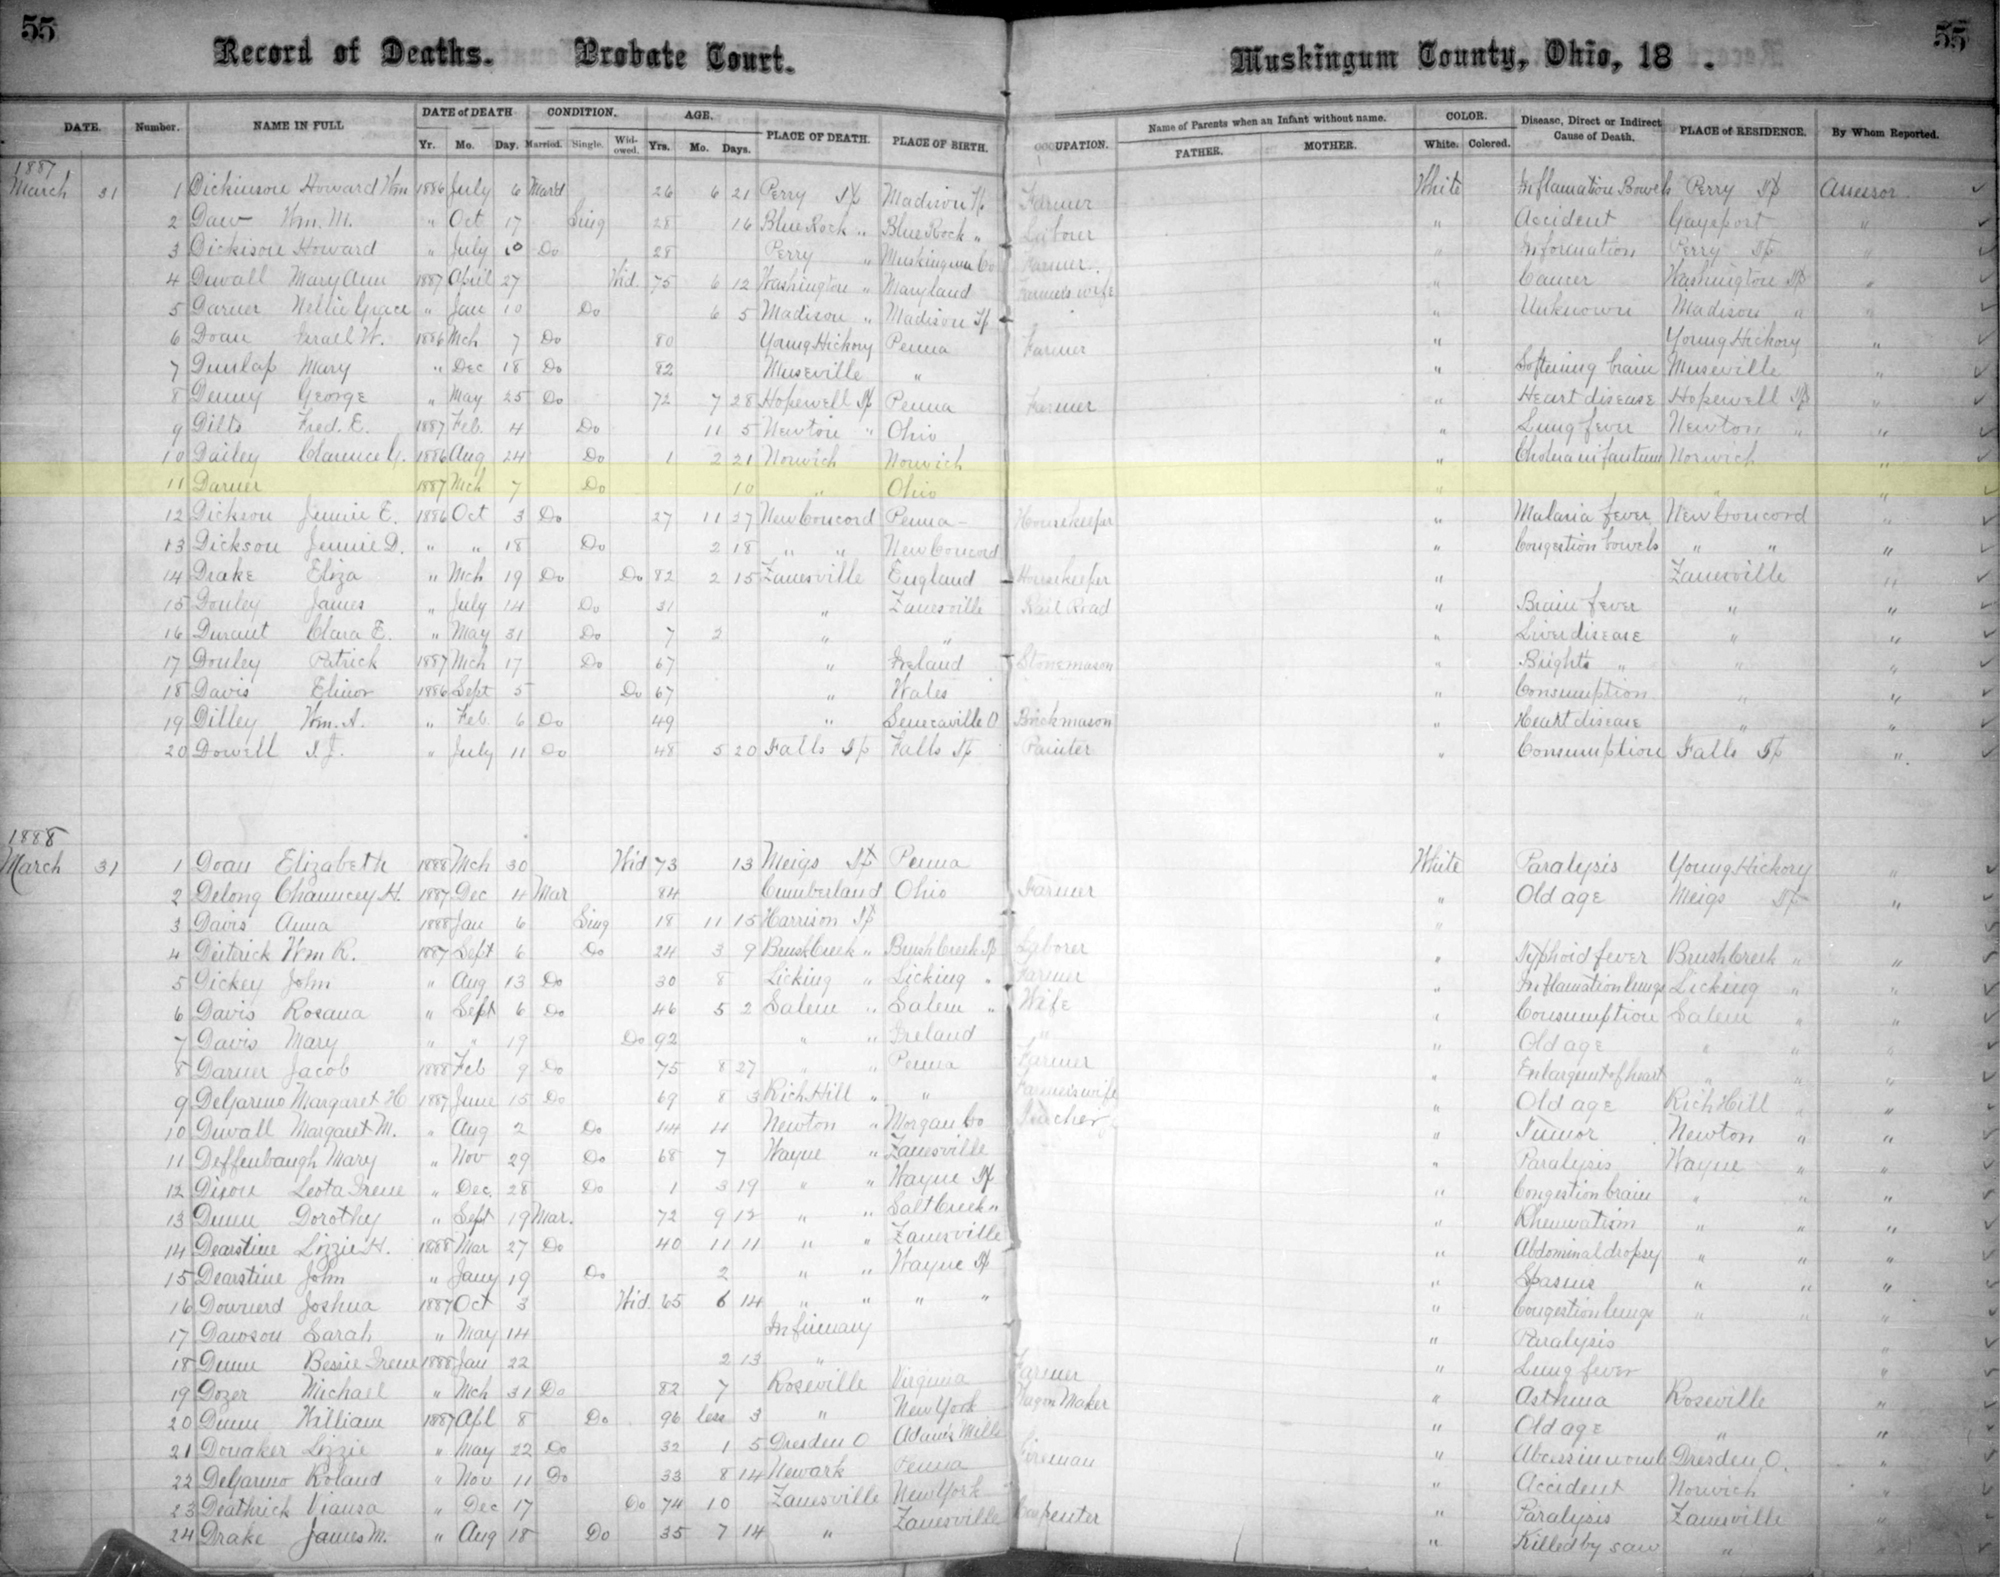 55
55
Record of Deaths. Probate Court.
Muskingum County, Ohio, 18 .
DATE. Number. NAME IN FULL DATE of DEATH CONDITION. AGE. PLACE OF DEATH. PLACE OF BIRTH. OCCUPATION. Name of Parents when an Infant without name. COLOR. Disease, Direct or Indirect Cause of Death. PLACE of RESIDENCE. By Whom Reported.
Yr. Mo. Day. Married. Single. Widowed. Yrs. Mo. Days. FATHER. MOTHER. White. Colored.
1887
March 31 1 Dickinson Howard Wm 1886 July 6 Mar'd 26 6 21 Perry Tp Madison Tp Farmer White Inflamation Bowels Perry Tp Assessor
2 Daw Wm. M. " Oct 17 Sing 28 16 Blue Rock " Blue Rock " Labour " Accident Gaysport "
3 Dickison Howard " July Do 28 Perry " Muskingum Co Farmer. " Information Perry Tp "
4 Duvall Mary Ann 1887 April 27 Wid. 75 6 12 Washington " Maryland Farmers wife " Cancer Washington Tp "
5 Darner Nellie Grace " Jan 10 Do 6 5 Madison " Madison Tp " Unknown Madison " "
6 Doan Israel W. 1886 Mch 7 Do 80 Young Hickory Penna Farmer " Young Hickory "
7 Dunlap Mary " Dec 18 Do 82 Museville " " Softening brain Museville "
8 Denny George " May 25 Do 72 7 28 Hopewell Tp Penna Farmer " Heart disease Hopewell Tp "
9 Dilts Fred. E. 1887 Feb. 4 Do 11 5 Newton " Ohio " Lung fever Newton " "
10 Dailey Clarence G. 1886 Aug 24 Do 1 2 21 Norwich Norwich " Cholera infantum Norwich "
11 Darner 1887 Mch 7 Do 10 " Ohio " " "
12 Dickson Jennie E. 1886 Oct 3 Do 27 11 27 New Concord Penna Housekeeper " Malaria fever New Concord "
13 Dickson Jennie D. " " 18 Do 2 18 " " New Concord " Congestion bowels " " "
14 Drake Eliza " Mch 19 Do Do 82 2 15 Zanesville England Housekeeper " Zanesville "
15 Donley James " July 14 Do 31 " Zanesville Rail Road " Brain fever " "
16 Durant Clara E. " May 31 Do 7 2 " " " Liver disease " "
17 Donley Patrick 1887 Mch 17 Do 67 " Ireland Stonemason " Brights " " "
18 Davis Elinor 1886 Sept 5 Do 67 " Wales " Consumption " "
19 Dilley Wm. A. " Feb. 6 Do 49 " Senecaville O Brickmason " Heart disease " "
20 Dowell T. J. " July 11 Do 48 5 20 Falls Tp Falls Tp Painter " Consumption Falls Tp "
1888
March 31 1 Doan Elizabeth 1888 Mch 30 Wid 73 13 Meigs Tp Penna White Paralysis Young Hickory "
2 Delong Chauncey H. 1887 Dec 4 Mar 84 Cumberland Ohio Farmer " Old age Meigs Tp "
3 Davis Anna 1888 Jan 6 Sing 18 11 15 Harrison Tp "
4 Deitrick Wm R. 1887 Sept 6 Do 24 3 9 Brush Creek " Brush Creek Tp Laborer " Typhoid fever Brush Creek " "
5 Dickey John " Aug 13 Do 30 8 Licking " Licking " Farmer " Inflamation lungs Licking " "
6 Davis Rosana " Sept 6 Do 46 5 2 Salem " Salem " Wife " Consumption Salem " "
7 Davis Mary " " 19 Do 92 " " Ireland " " Old age " " "
8 Darner Jacob 1888 Feb 9 Do 75 8 27 " " Penna Farmer " Enlargmt of heart " " "
9 DeGarmo Margaret H 1887 June 15 Do 69 8 3 Rich Hill " " Farmers wife " Old age Rich Hill " "
10 Duvall Margaret M. " Aug 2 Do 44 11 Newton " Morgan Co Teacher " Tumor Newton " "
11 Deffenbaugh Mary " Nov 29 Do 68 7 Wayne " Zanesville " Paralysis Wayne " "
12 Dixon Leota Irene " Dec. 28 Do 1 3 19 " " Wayne Tp " Congestion brain " " "
13 Dunn Dorothy " Sept 19 Mar. 72 9 12 " " Salt Creek " " Rheumatism " " "
14 Dearstine Lizzie H. 1888 Mar 27 Do 40 11 11 " " Zanesville " Abdominal dropsy " " "
15 Dearstine John " Jany 19 Do 2 " " Wayne Tp " Spasms " " "
16 Downerd Joshua 1887 Oct 3 Wid. 65 6 14 " " " " " Congestion lungs " " "
17 Dawson Sarah " May 14 Infirmary " Paralysis
18 Dunn Bessie Irene 1888 Jan 22 2 13 " " Lung fever "
19 Dozer Michael " Mch 31 Do 82 7 Roseville Virginia Farmer " Asthma Roseville "
20 Dunn William 1887 Apl 8 Do 96 less 3 " New York Wagon Maker " Old age " "
21 Donaker Lizzie " May 22 Do 32 1 5 Dresden O Adams Mills " Abcess in womb Dresden O. "
22 DeGarmo Roland " Nov 11 Do 33 8 14 Newark Penna Fireman " Accident Norwich "
23 Deathrick Viansa " Dec 17 Do 74 10 Zanesville New York " Paralysis Zanesville "
24 Drake James M. " Aug 18 Do 35 7 14 " Zanesville Carpenter " Killed by saw " "